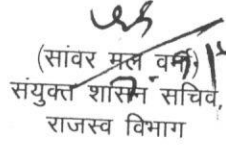 (सांवर मल वर्मा)
संयुक्त शासन सचिव,
राजस्व विभाग